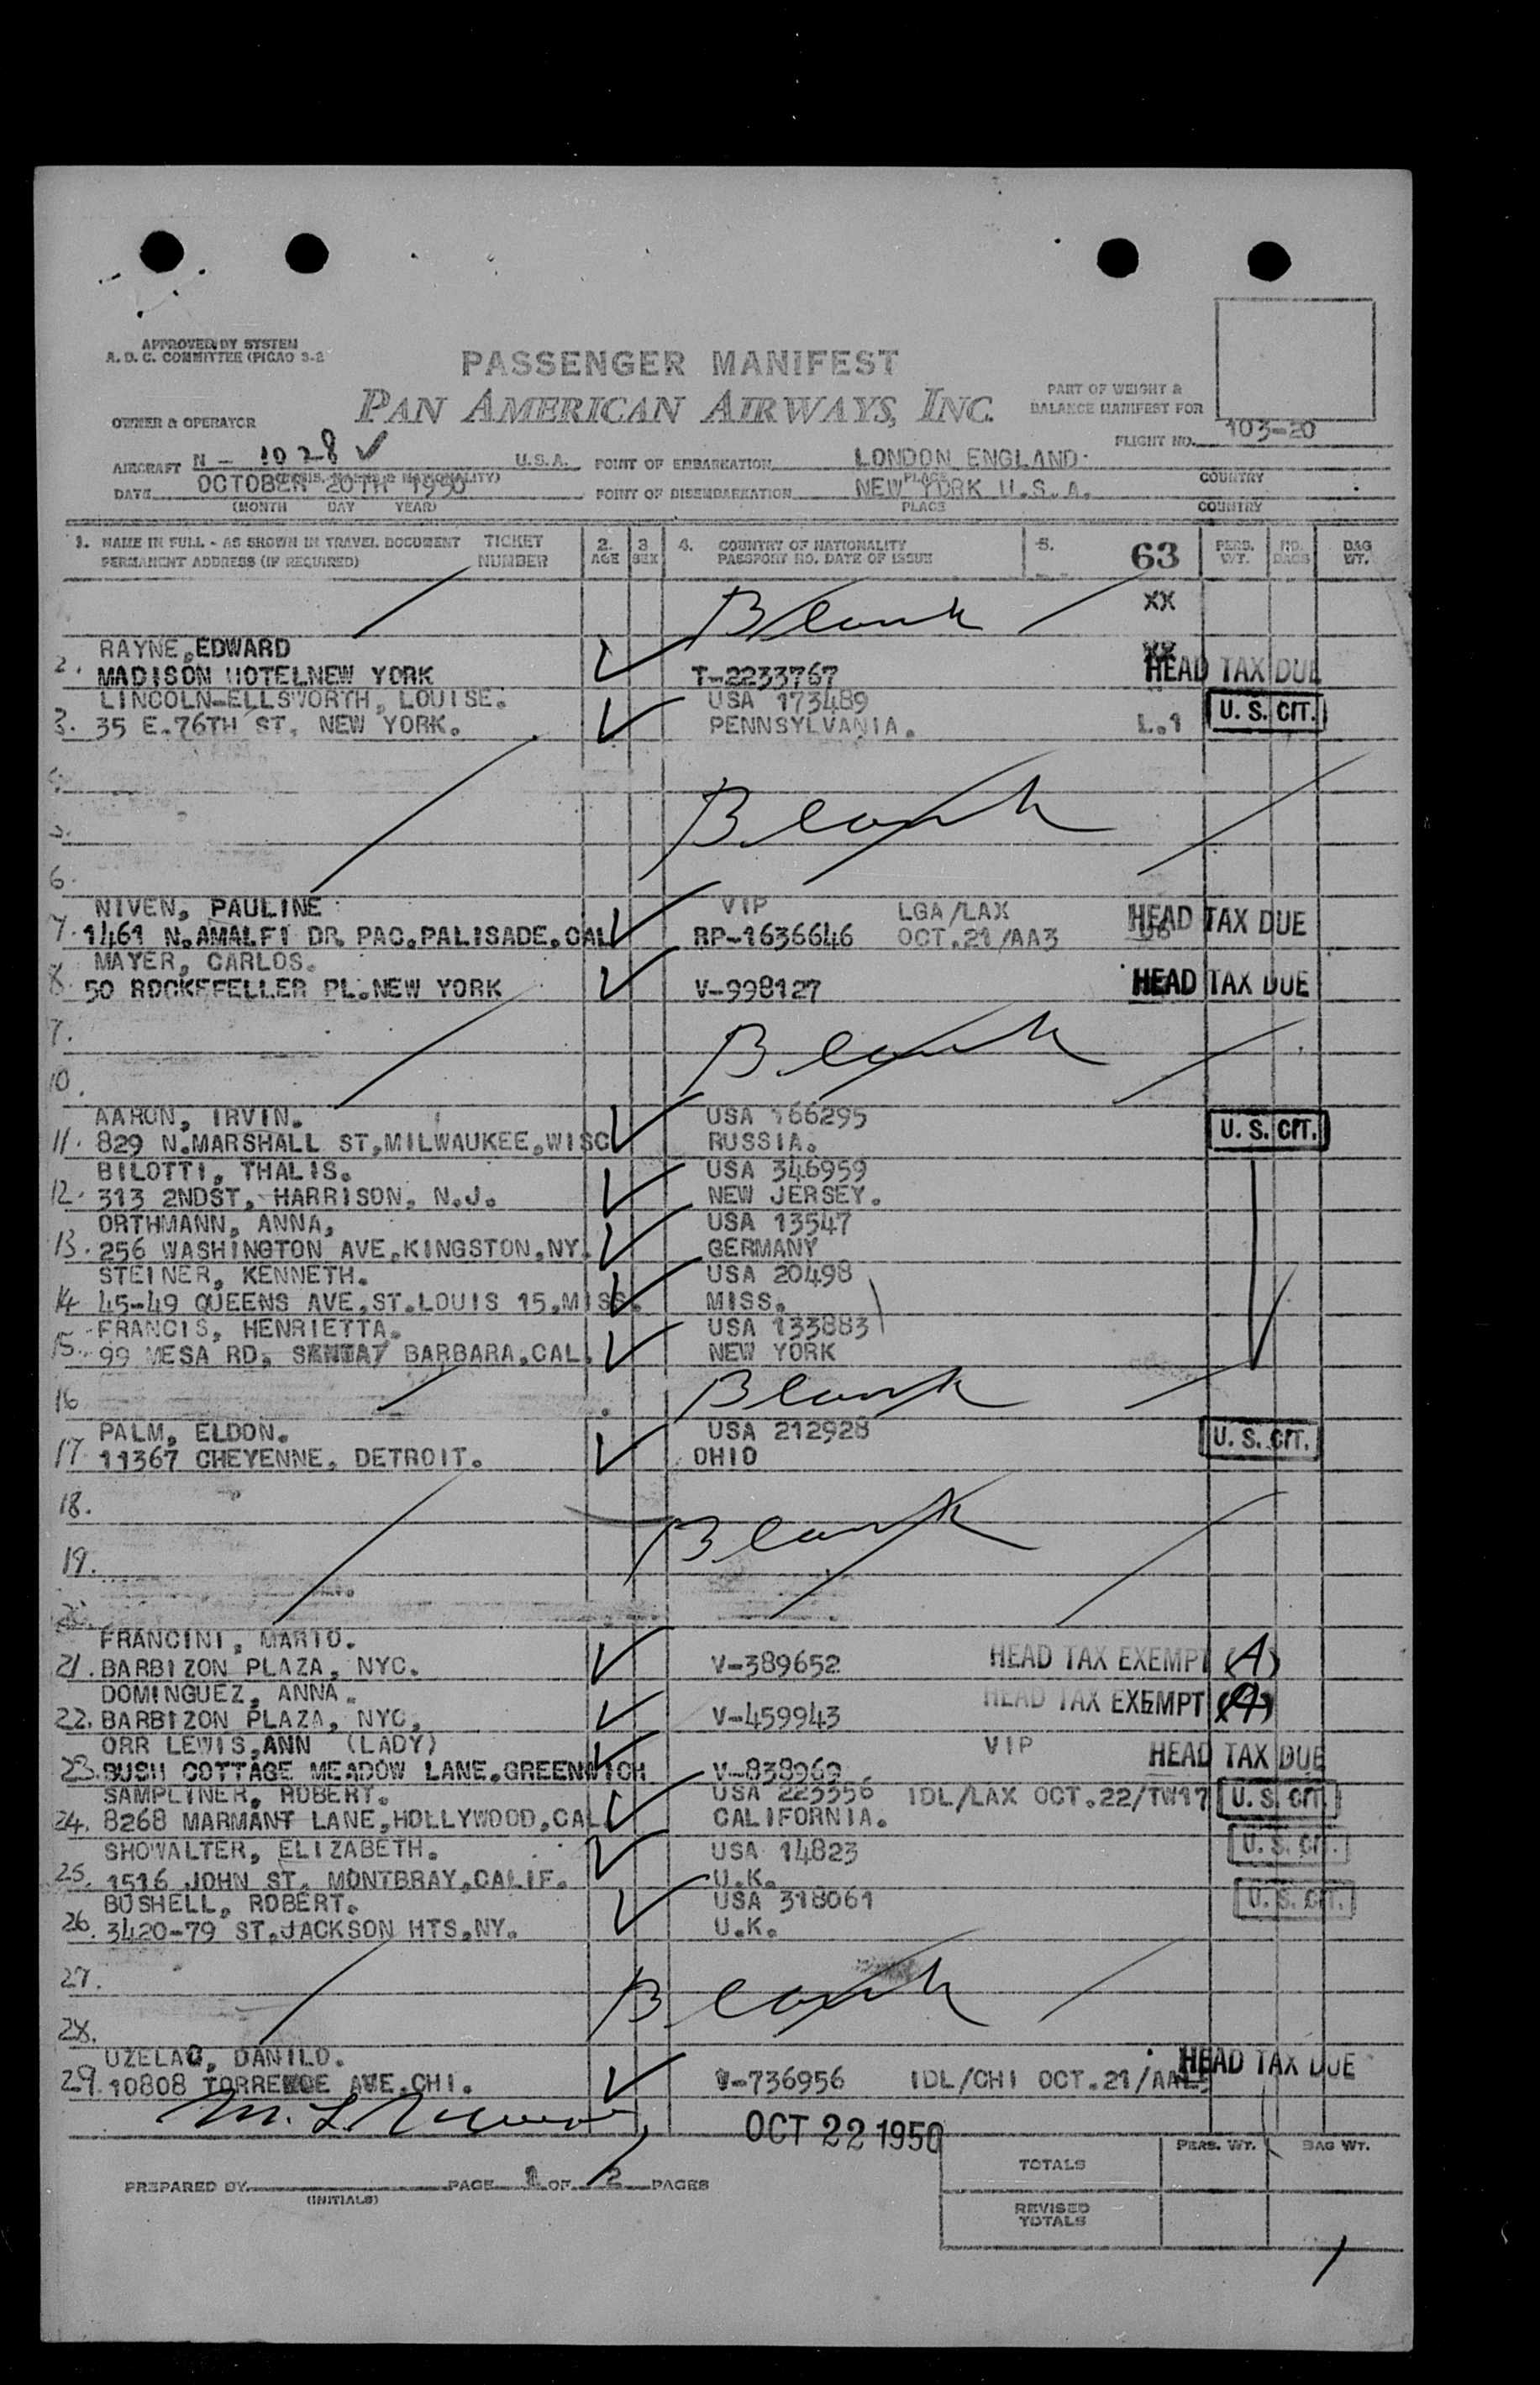 APPROVED BY SYSTEM
A. D. C. COMMITTEE (PICAO 3-2
PASSENGER MANIFEST
PAN AMERICAN AIRWAYS, INC.
PART OF WEIGHT &
BALANCE MANIFEST FOR
OWNER & OPERATOR
FLIGHT NO. 103-20
AIRCRAFT N - 1028 ✓ U.S.A. POINT OF EMBARKATION LONDON ENGLAND.
PLACE COUNTRY
DATE OCTOBER 20TH 1950 POINT OF DISEMBARKATION NEW YORK U.S.A.
(MONTH DAY YEAR) PLACE COUNTRY
1. NAME IN FULL - AS SHOWN IN TRAVEL DOCUMENT TICKET 2. 3 4. COUNTRY OF NATIONALITY 5. 63 PERS. NO. BAG
PERMANENT ADDRESS (IF REQUIRED) NUMBER AGE SEX PASSPORT NO. DATE OF ISSUE WT. BAGS WT.
Blank XX
RAYNE,EDWARD
2. MADISON HOTELNEW YORK T-2233767 HEAD TAX DUE
LINCOLN-ELLSWORTH, LOUISE. USA 173489 U. S. CIT.
3. 35 E.76TH ST, NEW YORK. PENNSYLVANIA. L.1
Blank
5.
6.
NIVEN, PAULINE VIP LGA/LAX
7. 1461 N.AMALFI DR. PAC.PALISADE.CAL RP-1636646 OCT.21/AA3 HEAD TAX DUE
MAYER, CARLOS.
8. 50 ROCKEFELLER PL.NEW YORK V-998127 HEAD TAX DUE
Blank
10.
AARON, IRVIN. USA 166295 U. S. CIT.
11. 829 N.MARSHALL ST,MILWAUKEE,WISC RUSSIA.
BILOTTI, THALIS. USA 346959
12. 313 2NDST, HARRISON, N.J. NEW JERSEY.
ORTHMANN, ANNA, USA 13547
13. 256 WASHINGTON AVE,KINGSTON,NY. GERMANY
STEINER, KENNETH. USA 20498
14 45-49 QUEENS AVE,ST.LOUIS 15,MISS. MISS.
FRANCIS, HENRIETTA. USA 133883
15. 99 MESA RD, BARBARA,CAL. NEW YORK
16 Blank
PALM, ELDON. USA 212928 U. S. CIT.
17. 11367 CHEYENNE, DETROIT. OHIO
18.
Blank
19.
FRANCINI, MARIO.
21. BARBIZON PLAZA, NYC. V-389652 HEAD TAX EXEMPT (A)
DOMINGUEZ, ANNA.
22. BARBIZON PLAZA, NYC, V-459943 HEAD TAX EXEMPT (A)
ORR LEWIS,ANN (LADY) VIP
23. BUSH COTTAGE MEADOW LANE.GREENWICH V-838969 HEAD TAX DUE
SAMPLINER, ROBERT. USA 223356 IDL/LAX OCT.22/TW17 U. S. CIT.
24. 8268 MARMANT LANE,HOLLYWOOD,CAL. CALIFORNIA.
SHOWALTER, ELIZABETH. USA 14823 U. S. CIT.
25. 1516 JOHN ST, MONTBRAY,CALIF. U.K.
BUSHELL, ROBERT. USA 318061 U. S. CIT.
26. 3420-79 ST.JACKSON HTS,NY. U.K.
27.
Blank
28.
UZELAC, DANILO.
29. 10808 TORRENCE AVE.CHI. V-736956 IDL/CHI OCT.21/ HEAD TAX DUE
OCT 22 1950
PERS. WT. BAG WT.
TOTALS
PREPARED BY PAGE 1 OF 2 PAGES
(INITIALS)
REVISED
TOTALS